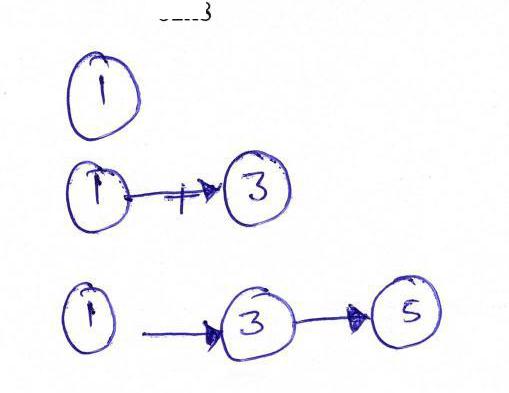 1
1 3
1 3 5